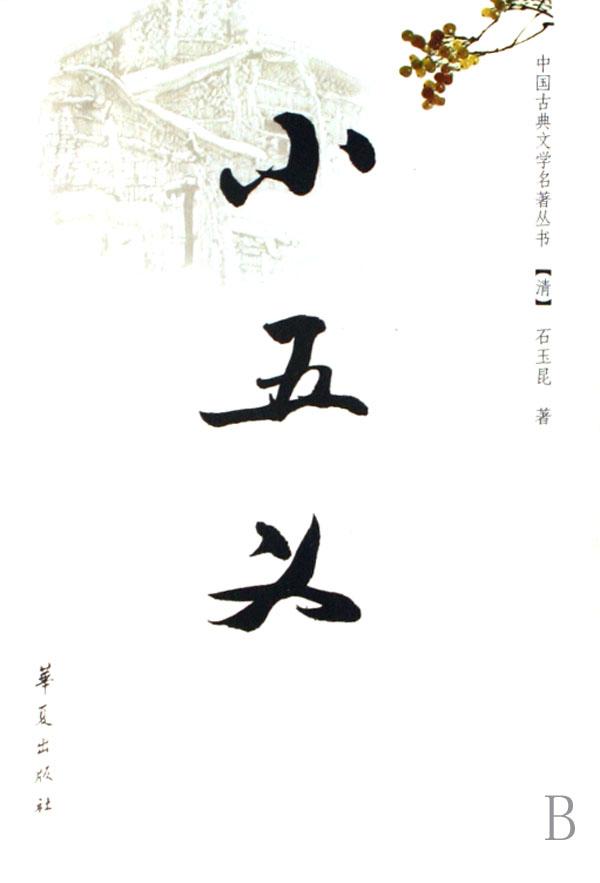 小五义
中国古典文学名著丛书 【清】 石玉昆 著
華夏出版社
B